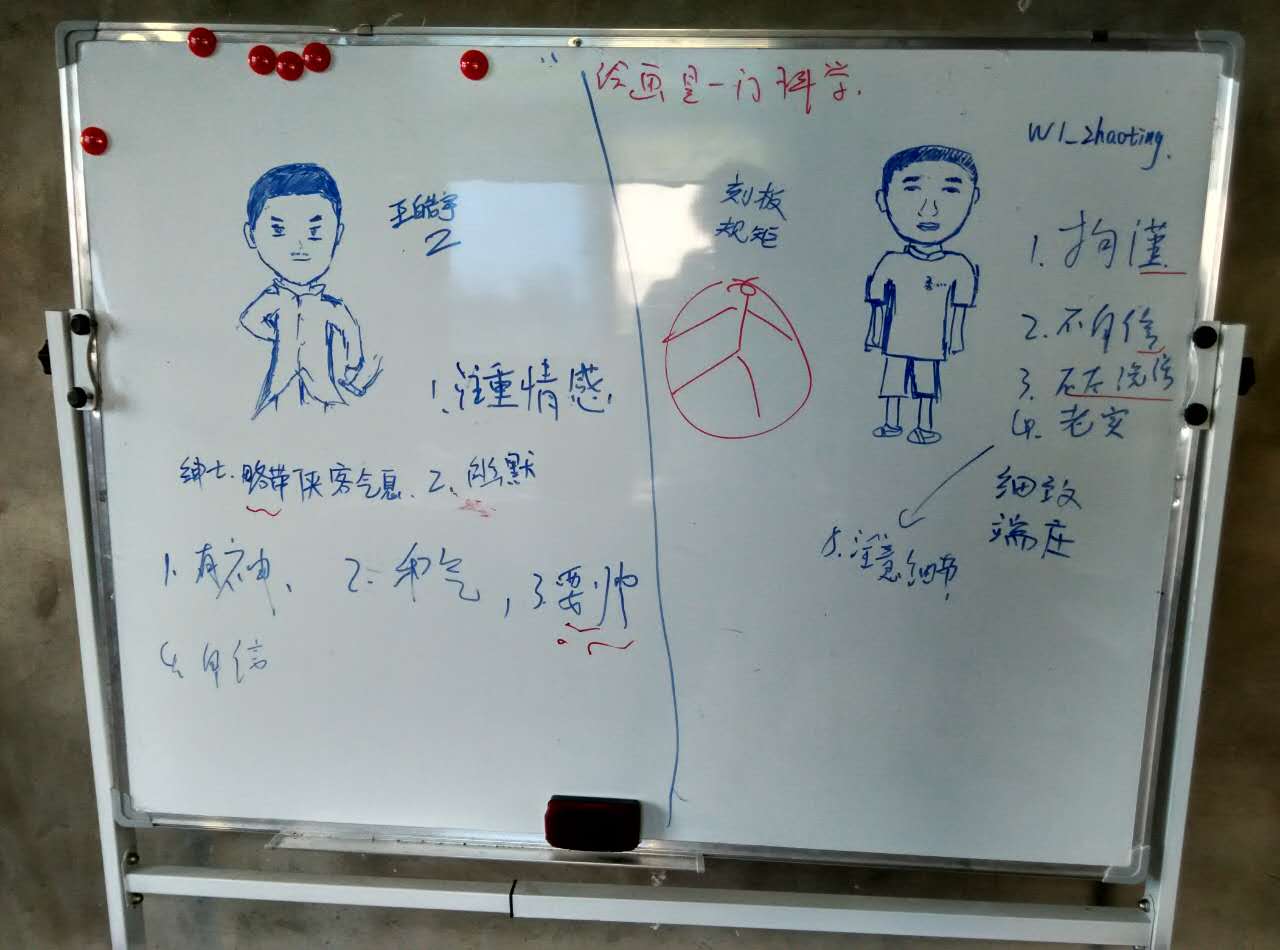 绘画是一门科学.
王皓宇
2
1.注重情感.
绅士.略带侠客气息. 2、幽默
1.有神、 2.和气, 3.要帅
4.自信
刻板
规矩
W1_zhaoting.
1.拘谨
2.不自信
3.
4.老实
细致
端庄
5.注意细节